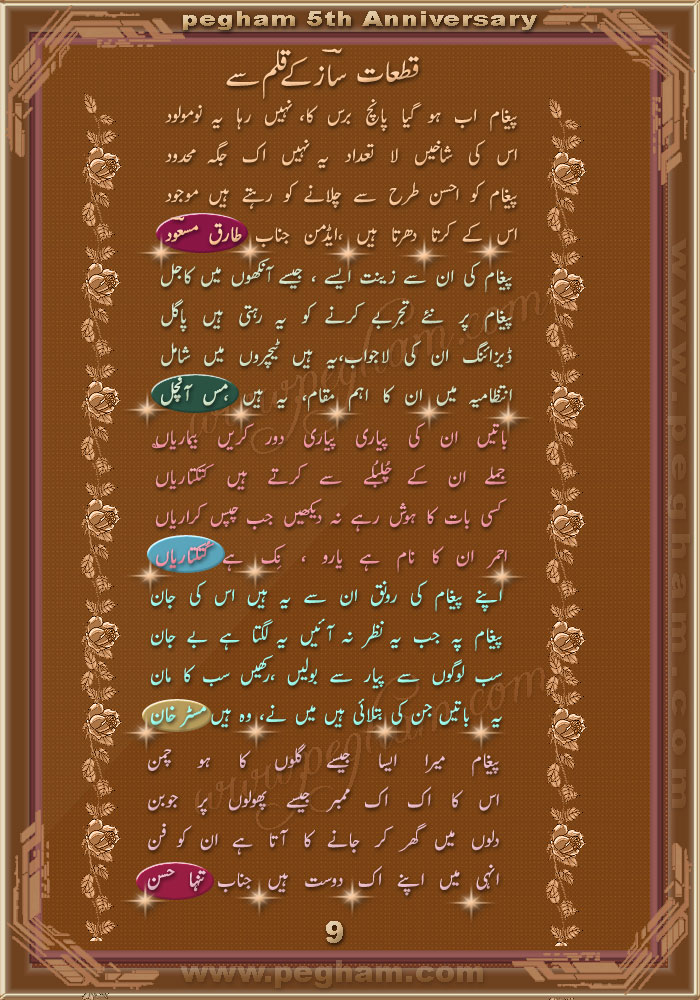 pegham 5th Anniversary
قطعات ساز کے قلم سے
پیغام اب ہو گیا پانچ برس کا، نہیں رہا یہ نومولود
اس کی شاخیں لا تعداد یہ نہیں اک جگہ محدود
پیغام کو احسن طرح سے چلانے کو رہتے ہیں موجود
اس کے کرتا دھرتا ہیں ،ایڈمن جناب طارق مسعود
پیغام کی ان سے زینت ایسے ، جیسے آنکھوں میں کاجل
پیغام پر نئے تجربے کرنے کو یہ رہتی ہیں پاگل
ڈیزائنگ ان کی لاجواب، یہ ہیں ٹیچروں میں شامل
انتظامیہ میں ان کا اہم مقام، یہ ہیں مس آنچل
باتیں ان کی پیاری پیاری دور کریں بیماریاں
جملے ان کے چلبلے سے کرتے ہیں کتکتاریاں
کسی بات کا ہوش رہے نہ دیکھیں جب چپس کراریاں
احمر ان کا نام ہے یارو ، نِک ہے کتکتاریاں
اپنے پیغام کی رونق ان سے یہ ہیں اس کی جان
پیغام پہ جب یہ نظر نہ آئیں یہ لگتا ہے بے جان
سب لوگوں سے پیار سے بولیں ،رکھیں سب کا مان
یہ باتیں جن کی بتلائی ہیں میں نے، وہ ہیں مسٹر خان
پیغام میرا ایسا جیسے گلوں کا ہو چمن
اس کا اک اک ممبر جیسے پھولوں پر جوبن
دلوں میں گھر کر جانے کا آتا ہے ان کو فن
انہی میں اپنے اک دوست ہیں جناب تنہا حسن
9
www.pegham.com
www.pegham.com
www.pegham.com
www.pegham.com